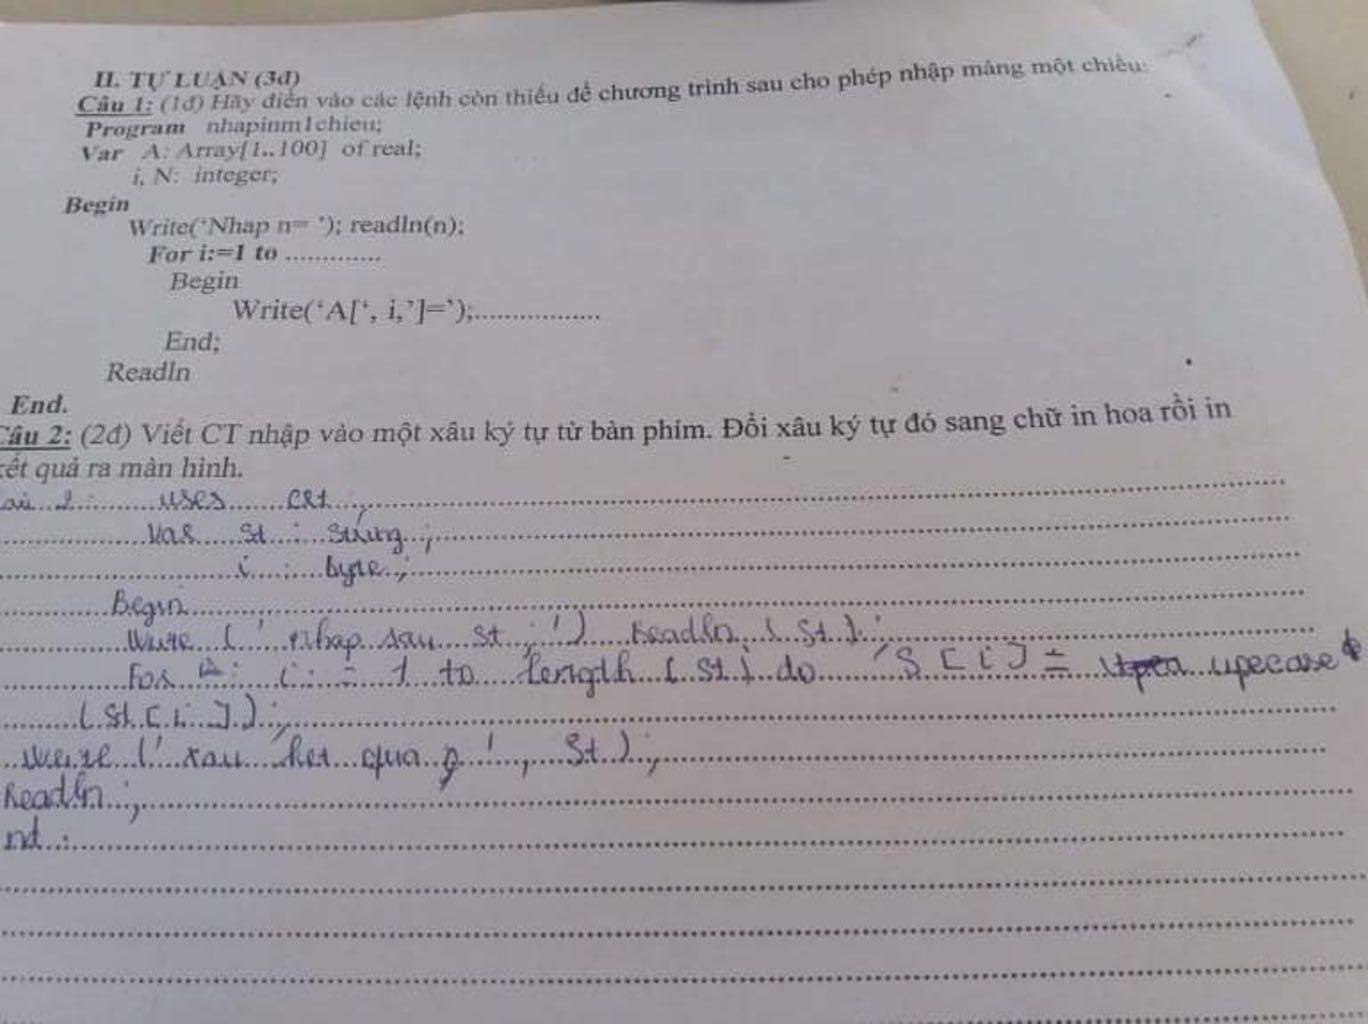 II. TỰ LUẬN (3đ)
Câu 1: (1đ) Hãy điền vào các lệnh còn thiếu để chương trình sau cho phép nhập mảng một chiều:
Program nhapinm1chieu;
Var A: Array[1..100] of real;
i, N: integer;
Begin
Write(‘Nhap n= ’); readln(n);
For i:=1 to .............
Begin
Write(‘A[‘, i,’]=’);.................
End;
Readln
End.
Câu 2: (2đ) Viết CT nhập vào một xâu ký tự từ bàn phím. Đổi xâu ký tự đó sang chữ in hoa rồi in
kết quả ra màn hình.
2: uses crt;
Var st : string;
i : byte;
Begin
Write (' nhap sau st : ') Readln (st);
For i := 1 to length (st) do S[i] := upecase
(st[i]);
Write (' xau ket qua ', St);
Readln;
nd.